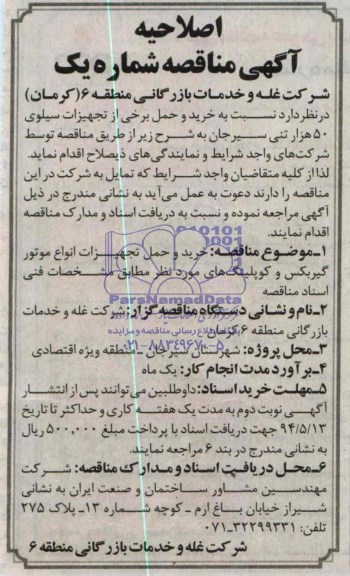 اصلاحیه
آگهی مناقصه شماره یک
شرکت غله و خدمات بازرگانی منطقه ۶ (کرمان)
درنظر دارد نسبت به خرید و حمل برخی از تجهیزات سیلوی
۵۰ هزار تنی سیرجان به شرح زیر از طریق مناقصه توسط
شرکت‌های واجد شرایط و نمایندگی‌های ذیصلاح اقدام نماید.
لذا از کلیه متقاضیان واجد شرایط که تمایل به شرکت در این
مناقصه را دارند دعوت به عمل می‌آید به نشانی مندرج در ذیل
آگهی مراجعه نموده و نسبت به دریافت اسناد و مدارک مناقصه
اقدام نمایند.
۱ـ موضوع مناقصه: خرید و حمل تجهیزات انواع موتور
گیربکس و کوپلینگ‌های مورد نظر مطابق مشخصات فنی
اسناد مناقصه
ParsNamadData
۲ـ نام و نشانی دستگاه مناقصه گزار: شرکت غله و خدمات
بازرگانی منطقه ۶ کرمان
پایگاه اطلاع رسانی مناقصه و مزایده
۰۲۱-۸۸۳۴۹۶۷۰-۵
۳ـ محل پروژه: شهرستان سیرجان ـ منطقه ویژه اقتصادی
۴ـ برآورد مدت انجام کار: یک ماه
۵ـ مهلت خرید اسناد: داوطلبین می‌توانند پس از انتشار
آگهی نوبت دوم به مدت یک هفته کاری و حداکثر تا تاریخ
۹۴/۵/۱۳ جهت دریافت اسناد با پرداخت مبلغ ۵۰۰,۰۰۰ ریال
به نشانی مندرج در بند ۶ مراجعه نمایند.
۶ـ محل دریافت اسناد و مدارک مناقصه: شرکت
مهندسین مشاور ساختمان و صنعت ایران به نشانی
شیراز خیابان باغ ارم ـ کوچه شماره ۱۳ـ پلاک ۲۷۵
تلفن: ۳۲۲۹۹۳۳۱-۰۷۱
شرکت غله و خدمات بازرگانی منطقه ۶